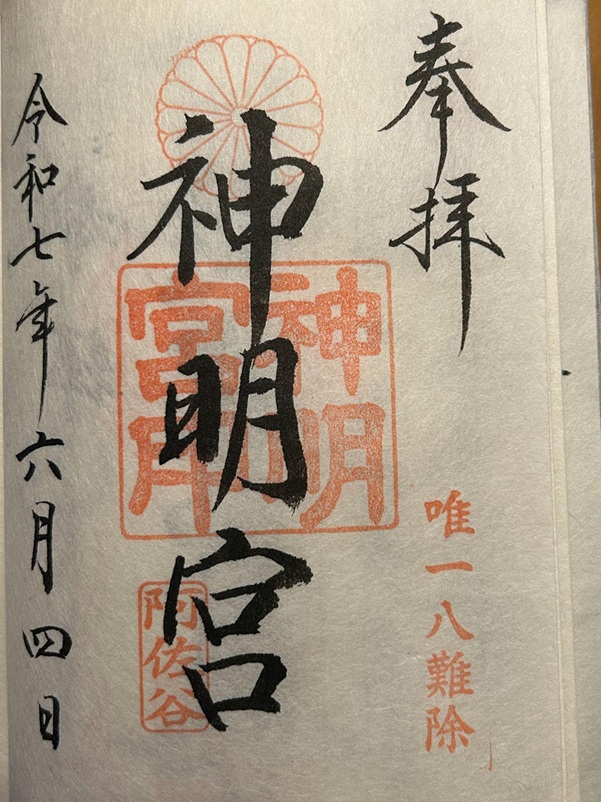 奉拝
唯一八難除
神明宮
神明宮印
阿佐谷
令和七年六月四日